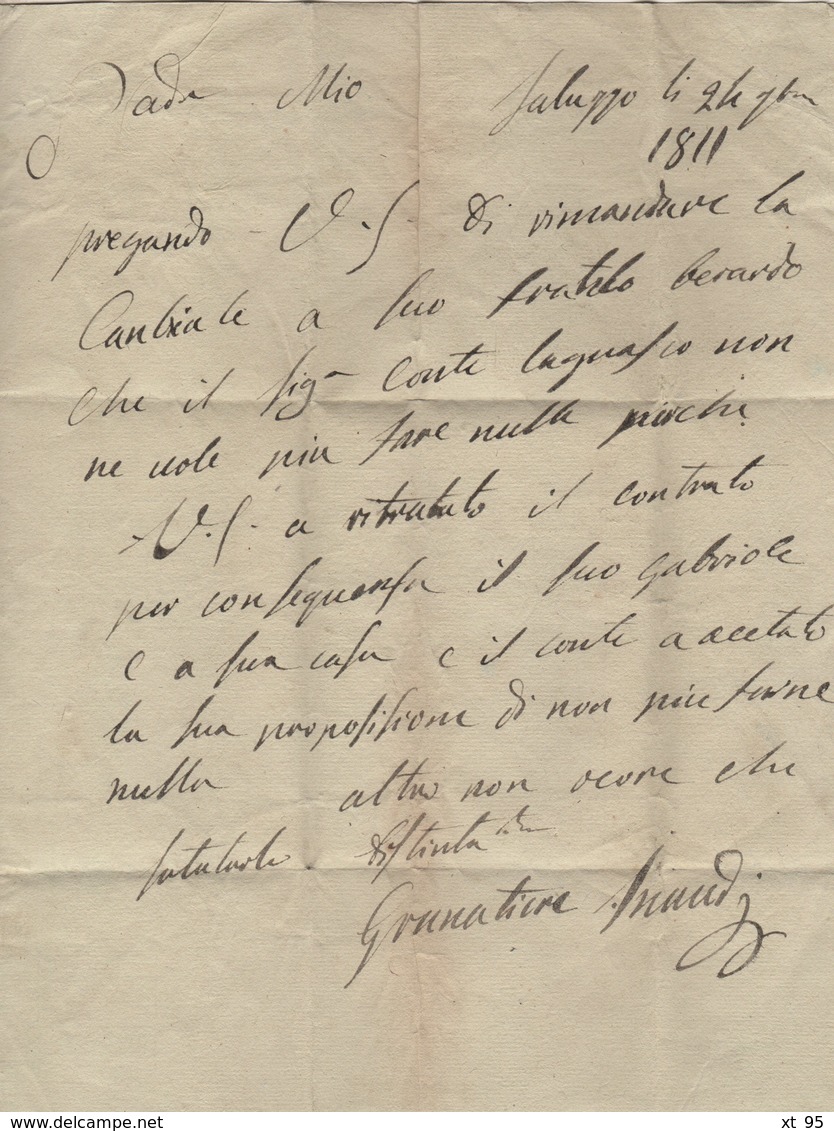 Padre Mio Saluzzo li 24 9bre
1811
pregando V. S. di rimandare la
Cambiale a suo fratelo berardo
che il sigr conte lagnasco non
ne vole piu fare nulla perche
V. S. a ritratato il contrato
per consequensa il suo gabriele
e a sua casa e il conte a acetato
la sua proposisione di non piu farne
nulla altro non ocore che
salutarla distinta
Granatiere
delcampe.net xt 95